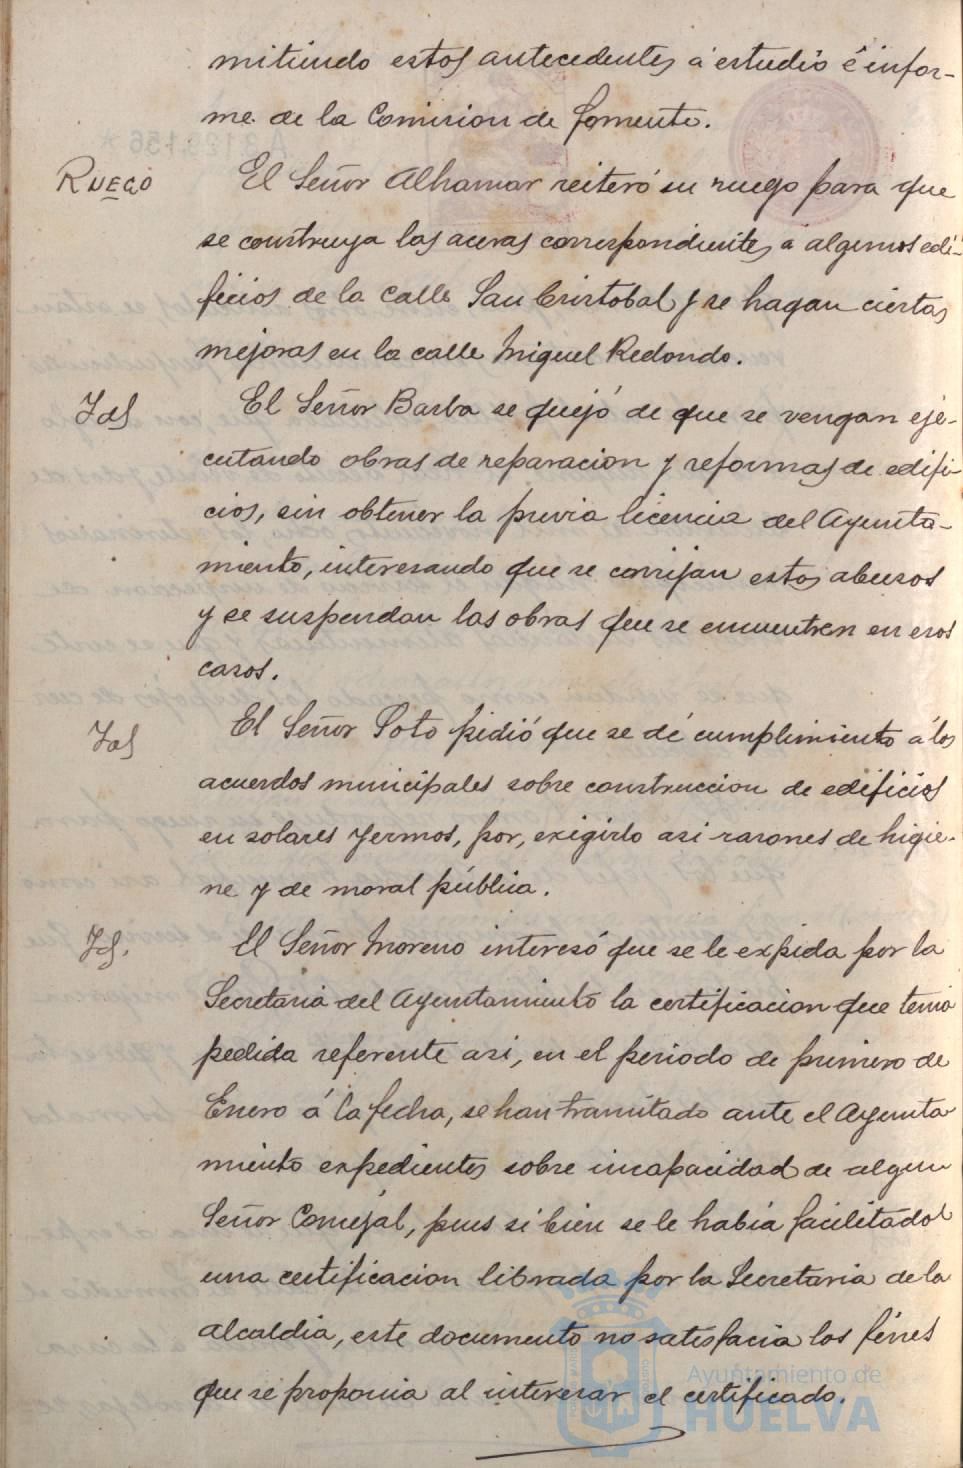 mitiendo estos antecedentes á estudio é infor-
me de la Comision de fomento.
RUEGO
El Señor Alhamar reiteró su ruego para que
se construya las aceras correspondientes a algunos edi-
ficios de la calle San Cristobal y se hagan ciertas
mejoras en la calle Miguel Redondo.
Id
El Señor Barba se quejó de que se vengan eje-
cutando obras de reparacion y reformas de edifi-
cios, sin obtener la previa licencia del Ayunta-
miento, interesando que se corrijan estos abusos
y se suspendan las obras que se encuentren en esos
casos.
Id
El Señor Soto pidió que se dé cumplimiento á los
acuerdos municipales sobre construccion de edificios
en solares yermos, por, exigirlo asi rasones de higie-
ne y de moral pública.
Id.
El Señor Moreno interesó que se le expida por la
Secretaria del Ayuntamiento la certificacion que tenia
pedida referente asi, en el periodo de primero de
Enero á la fecha, se han tramitado ante el Ayunta
miento expedientes sobre incapacidad de algun
Señor Concejal, pues si bien se le había facilitado
una certificacion librada por la Secretaria de la
alcaldia, este documento no satisfacia los fines
que se proponia al interesar el certificado.
Ayuntamiento de
HUELVA